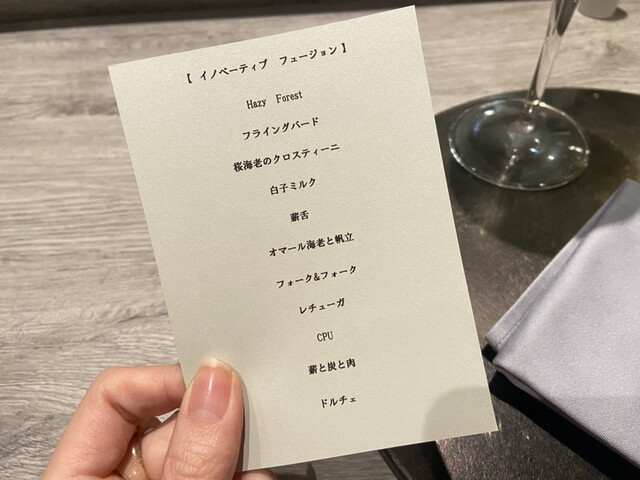 【 イノベーティブ　フュージョン 】
Hazy Forest
フライングバード
桜海老のクロスティーニ
白子ミルク
薪舌
オマール海老と帆立
フォーク&フォーク
レチューガ
CPU
薪と炭と肉
ドルチェ